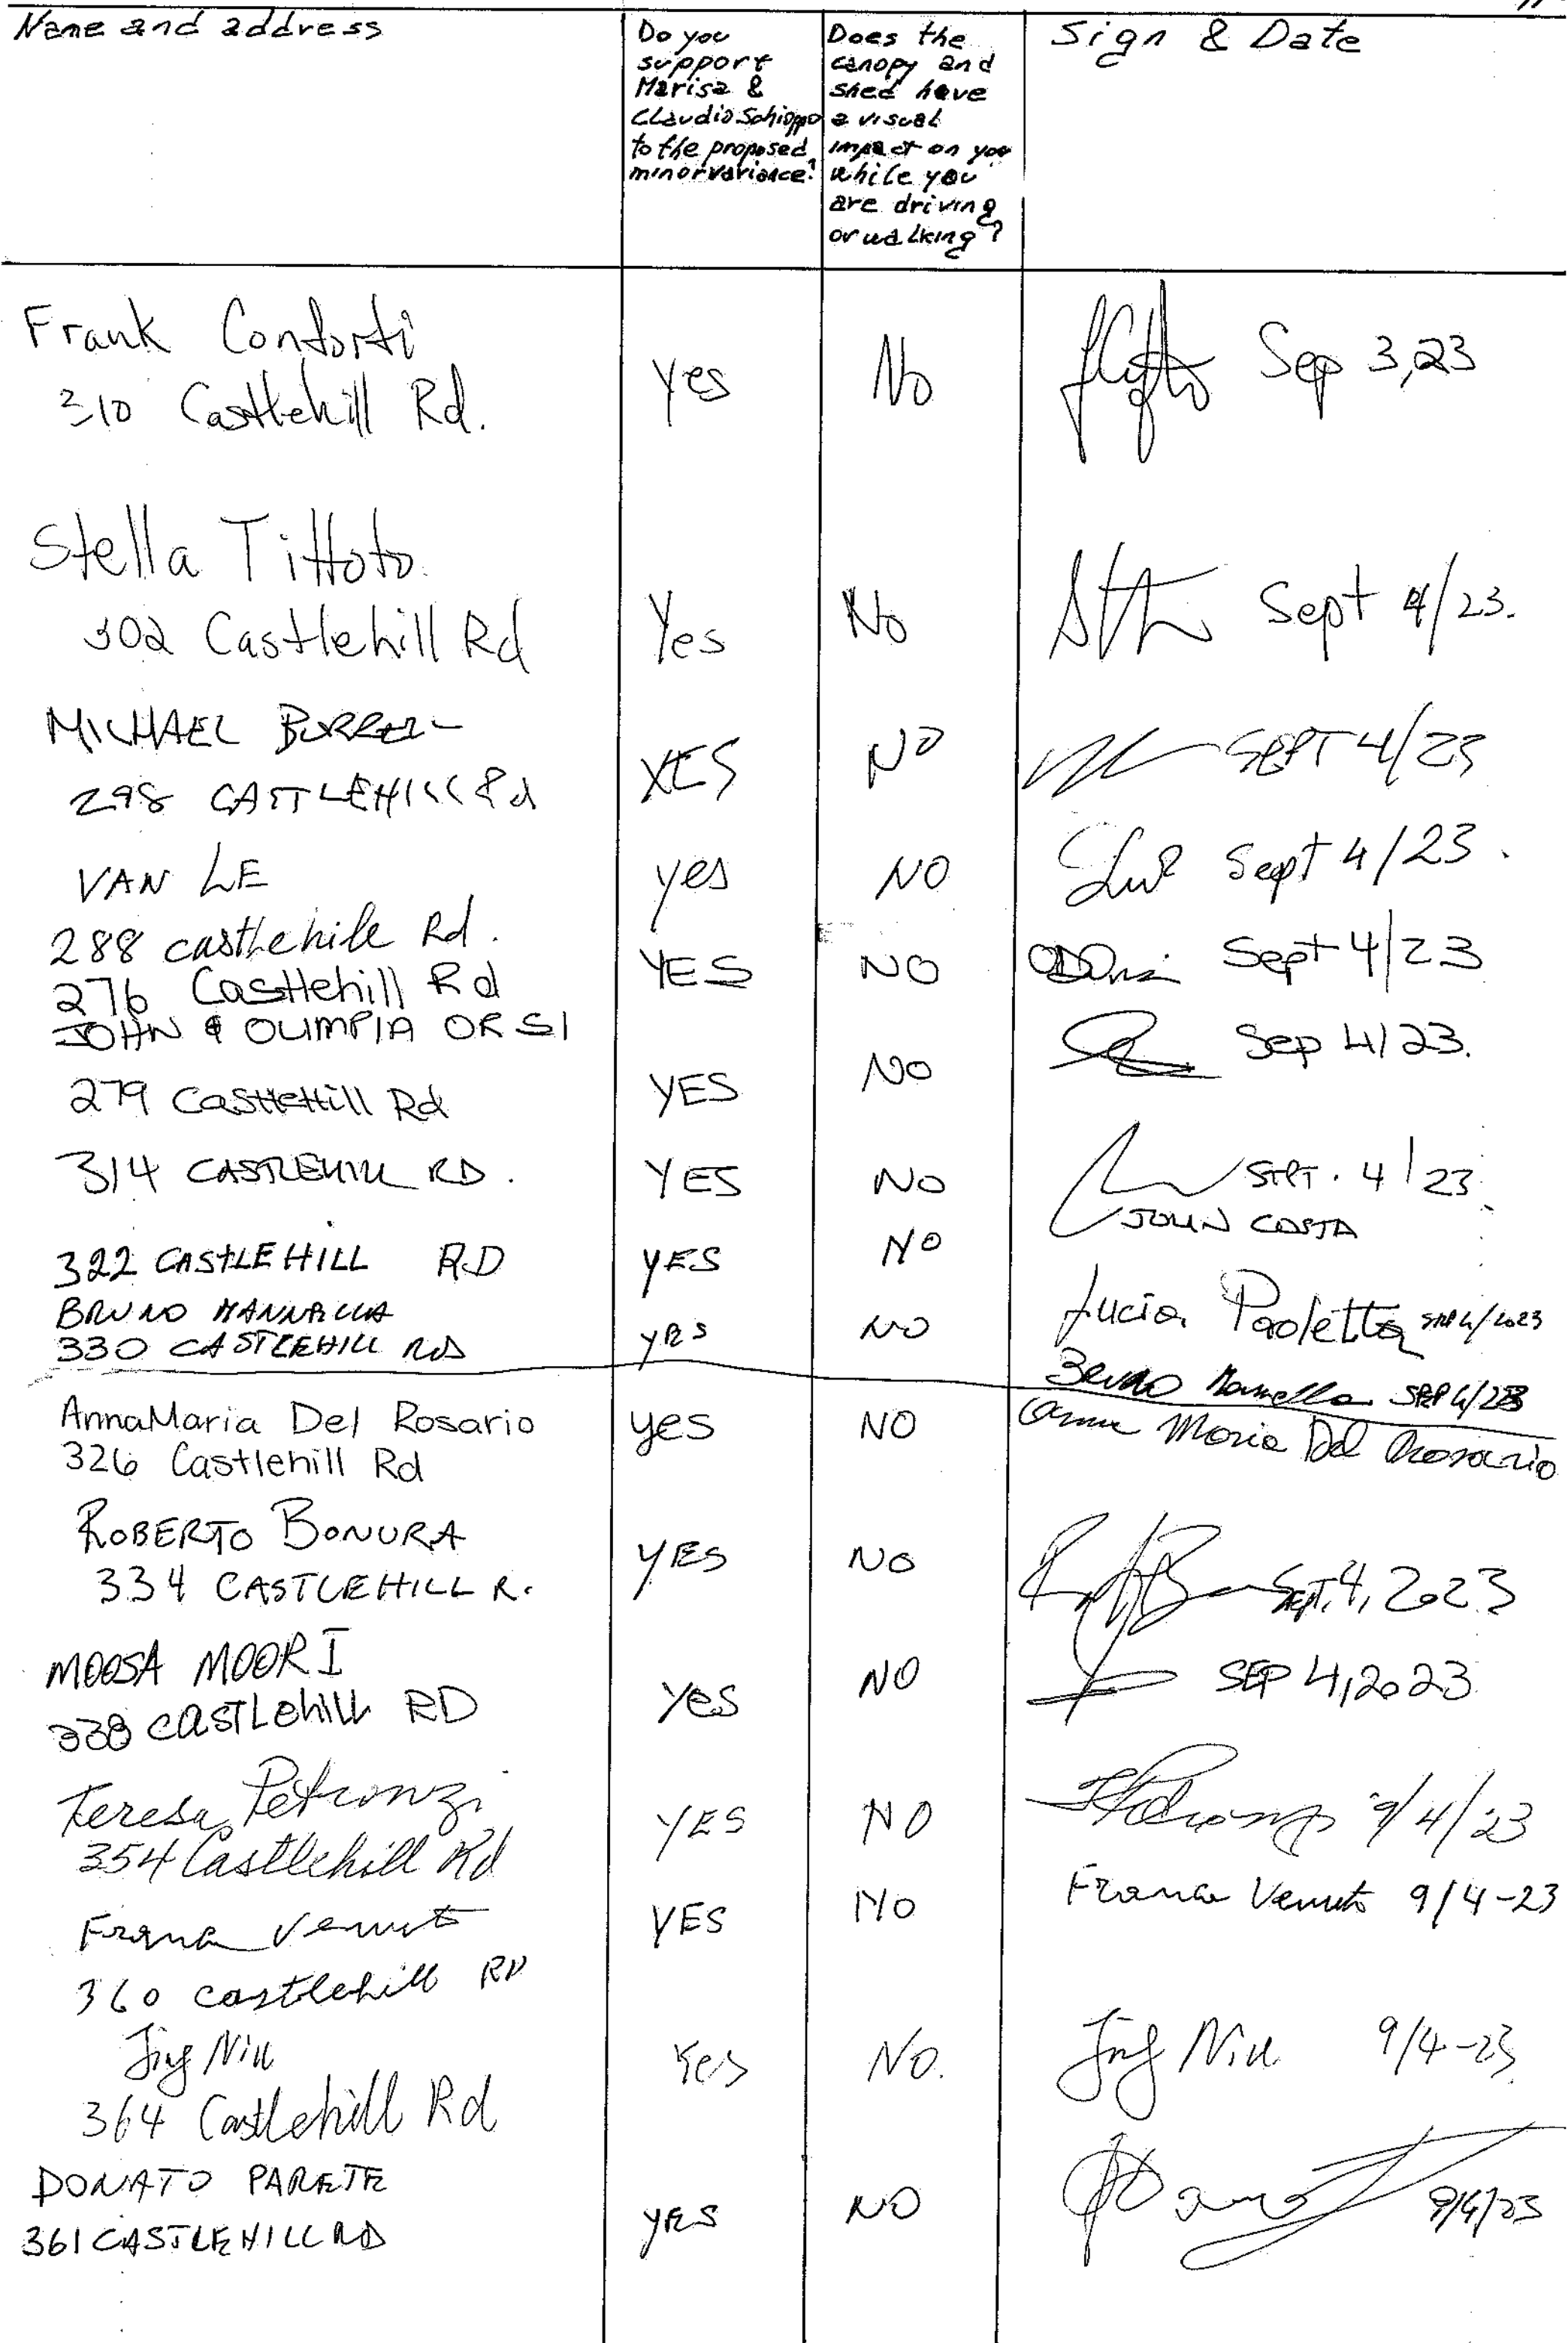 Name and address
Do you support Marisa & Claudio Schioppo to the proposed minor variance?
Does the canopy and shed have a visual impact on you while you are driving or walking?
Sign & Date
Frank Conforti
310 Castlehill Rd.
Yes
No
Sep 3,23
Stella Tittoto
302 Castlehill Rd
Yes
No
Sept 4/23.
MICHAEL
298 CASTLEHILL Rd
YES
NO
SEPT 4/23
VAN LE
288 castlehile Rd.
yes
NO
Sept 4/23.
276 Castlehill Rd
JOHN & OLIMPIA ORSI
YES
NO
Sept 4/23
279 CastleHill Rd
YES
NO
Sep 4/23.
314 CASTLEHILL RD.
YES
NO
SEPT. 4/23
JOHN COSTA
322 CASTLEHILL RD
YES
NO
Lucia Paoletta SEP 4/2023
BRUNO MANNELLA
330 CASTLEHILL RD
YES
NO
Bruno Mannella SEP 4/23
AnnaMaria Del Rosario
326 Castlehill Rd
yes
NO
Anna Maria Del Rosario
ROBERTO BONURA
334 CASTLEHILL R.
YES
NO
SEPT, 4, 2023
MOOSA MOORI
338 CASTLEhILL RD
Yes
NO
SEP 4,2023
Teresa Petronzi
354 Castlehill Rd
YES
NO
9/4/23
Franca Venuto
360 castlehill RD
YES
NO
Franca Venuto 9/4-23
Jing Niu
364 Castlehill Rd
Yes
No.
Jing Niu 9/4-23
DONATO PARETE
361 CASTLEHILL RD
YES
NO
9/4/23